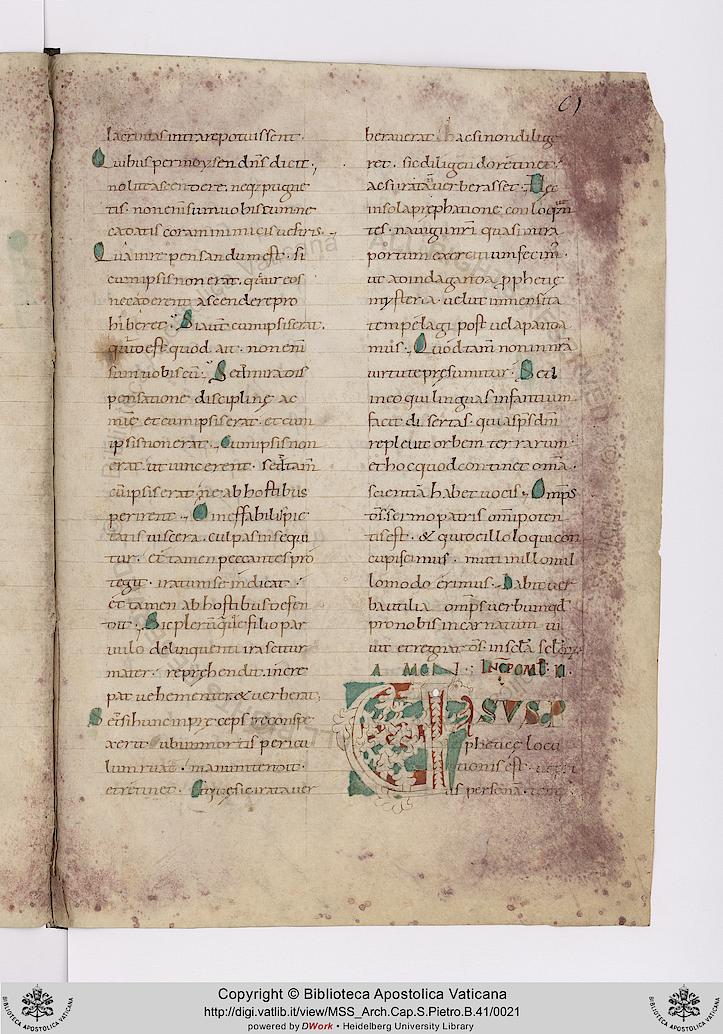 lacrimas intrare potuissent.
Quibus per moysen dns dicit,
nolite ascendere. neq; pugne
tis. non eni sum uobiscum ne
cadatis coram inimicis uestris.
Qua in re pensandum est. si
cum ipsis non erat. qare eos
ne caderent ascendere pro
hiberet. Si aut cum ipsis erat.
quid est quod ait. non eni
sum uobiscu. Sed mira dis
pensatione discipline ac
cum ipsis erat. et cum
ipsis non erat. Cum ipsis non
erat. ut uincerent. sed tam
cu ipsis erat. ne ab hostibus
perirent. O ineffabilis pie
tatis uiscera. culpas insequi
tur. et tamen peccantes pro
tegit. iratum se indicat.
et tamen ab hostibus defen
dit. Sic plerumque filio par
uulo delinquenti irascitur
mater. reprehendit. incre
pat uehementer. & uerberat,
Set si hunc in preceps ire conspe
xerit. ubi in mortis pericu
lum ruat. manum tendit.
et retinet. Atque sic irata uer
berauerat. hac si non dilige
ret. sic diligendo retinet.
ac si irata uerberasset. Nec
in sola prephatione conloqen
tes. nauigii nri quasi intra
portum exercitium fecim.
ut ad indaganda pphetie
mysteria. uelut inmensita
tem pelagi post uela panda
mus. Quod tam non in nra
uirtute presumitur. Sed
in eo qui linguas infantium
facit disertas. quia sps dni
repleuit orbem terrarum.
et hoc quod continet omia.
scientia habet uocis. Omps
ds. sermo patris omipoten
tis est. & qui de illo loqui con
cupiscimus. muti in illo nul
lo modo erimus. Dabit uer
ba utilia omps uerbum qd
pro nobis incarnatum ui
uit et regnat ds. in scla sclor.
AMEN. INC POMEL II.
USUS P
phetice locu
tionis est. ut
us persona. tem
C) Biblioteca Apostolica Vaticana
Copyright © Biblioteca Apostolica Vaticana
http://digi.vatlib.it/view/MSS_Arch.Cap.S.Pietro.B.41/0021
powered by DWork • Heidelberg University Library